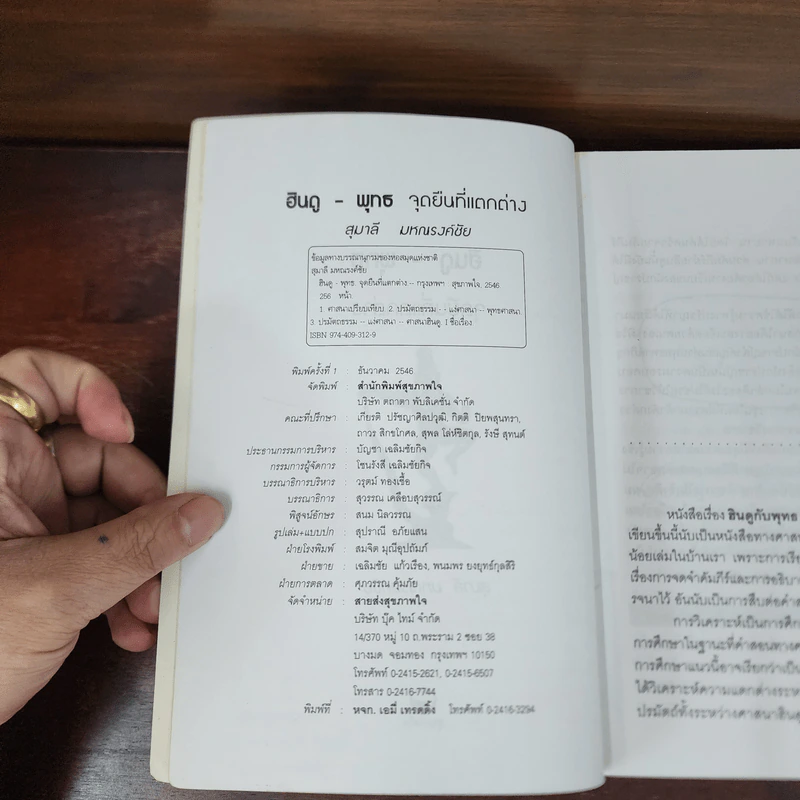 ฮินดู - พุทธ จุดยืนที่แตกต่าง
สุมาลี มหณรงค์ชัย
ข้อมูลทางบรรณานุกรมของหอสมุดแห่งชาติ
สุมาลี มหณรงค์ชัย
ฮินดู - พุทธ จุดยืนที่แตกต่าง -- กรุงเทพฯ สุขภาพใจ, 2546
256 หน้า
1. ศาสนาเปรียบเทียบ 2. ปรมัตถธรรม - - แง่ศาสนา -- พุทธศาสนา.
3. ปรมัตถธรรม -- แง่ศาสนา -- ศาสนาฮินดู I ชื่อเรื่อง
ISBN 974-409-312-9
พิมพ์ครั้งที่ 1 : ธันวาคม 2546
จัดพิมพ์ : สำนักพิมพ์สุขภาพใจ
บริษัท ตถาตา พับลิเคชั่น จำกัด
คณะที่ปรึกษา : เกียรติ ปรัชญาศิลปวุฒิ, กิตติ ปิยพสุนทรา,
ถาวร สิกขโกศล, สุพล โล่ห์ชิตกุล, รังษี สุทนต์
ประธานกรรมการบริหาร : บัญชา เฉลิมชัยกิจ
กรรมการผู้จัดการ : โชนรังสี เฉลิมชัยกิจ
บรรณาธิการบริหาร : วรุตม์ ทองเชื้อ
บรรณาธิการ : สุวรรณ เคลือบสุวรรณ์
พิสูจน์อักษร : สนม นิลวรรณ
รูปเล่ม+แบบปก : สุปราณี อภัยแสน
ฝ่ายโรงพิมพ์ : สมจิต มุณีอุปถัมภ์
ฝ่ายขาย : เฉลิมชัย แก้วเรือง, พนมพร ยงยุทธ์กุลสิริ
ฝ่ายการตลาด : ศุภวรรณ คุ้มภัย
จัดจำหน่าย : สายส่งสุขภาพใจ
บริษัท บุ๊ค ไทม์ จำกัด
14/370 หมู่ 10 ถ.พระราม 2 ซอย 38
บางมด จอมทอง กรุงเทพฯ 10150
โทรศัพท์ 0-2415-2621, 0-2415-6507
โทรสาร 0-2416-7744
พิมพ์ที่ : หจก. เอมี่ เทรดดิ้ง โทรศัพท์ 0-2416-3294
หนังสือเรื่อง ฮินดูกับพุทธ
เขียนขึ้นนี้นับเป็นหนังสือทางศาส
น้อยเล่มในบ้านเรา เพราะการเรีย
เรื่องการจดจำคัมภีร์และการอธิบา
รจนาไว้ อันนับเป็นการสืบต่อคำส
การวิเคราะห์เป็นการศึก
การศึกษาในฐานะที่คำสอนทาง
การศึกษาแนวนี้อาจเรียกว่าเป็น
ได้วิเคราะห์ความแตกต่างระห
ปรมัตถ์ทั้งระหว่างศาสนาฮินดู